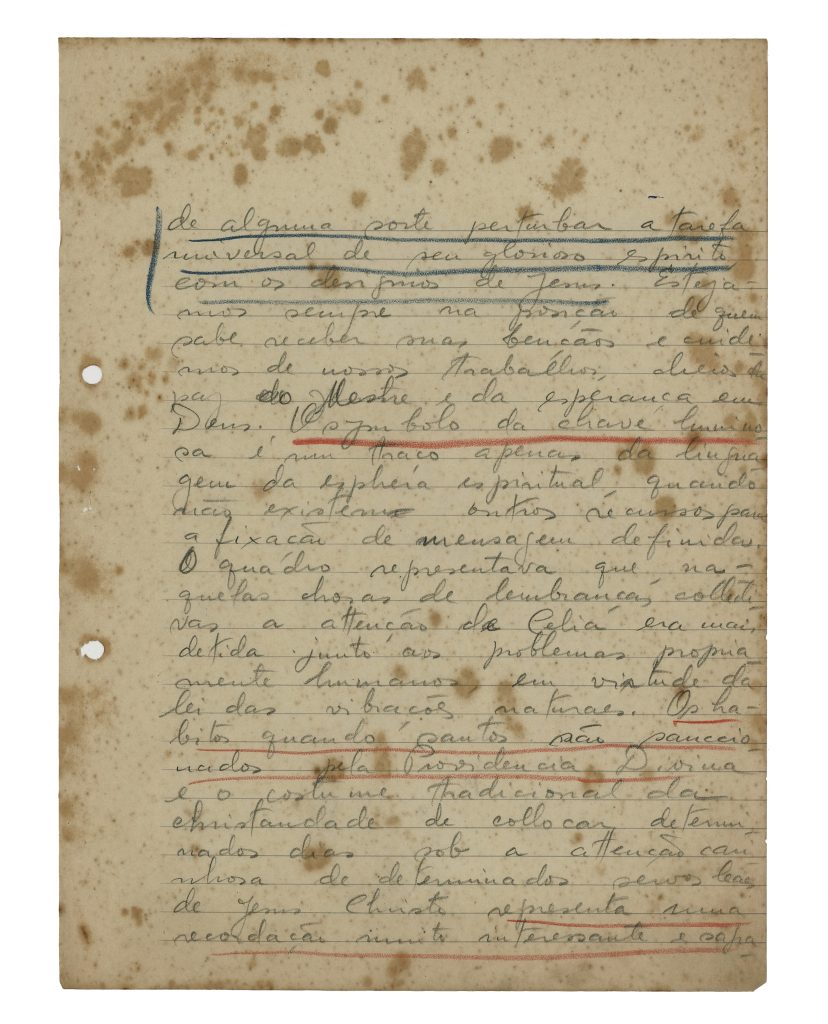 de alguma sorte perturbar a tarefa
universal de seu glorioso espirito
com os designios de Jesus. Esteja-
mos sempre na posição de quem
sabe receber suas bençãos e cuide-
mos de nossos trabalhos, cheios da
paz do Mestre e da esperança em
Deus. O symbolo da chave lumino
sa é um traço apenas da lingua
gem da esphera espiritual, quando
não existem outros recursos para
a fixação de mensagem definida.
O quadro representava que na-
quelas horas de lembranças collecti
vas a attenção de Celia era mais
detida junto aos problemas propria
mente humanos, em virtude da
lei das vibrações naturaes. Os ha-
bitos quando santos são sanccio
nados pela Providencia Divina
e o costume tradicional da
christandade de collocar determi
nados dias sob a attenção cari
nhosa de determinados servos leaes
de Jesus Christo representa uma
recordação muito interessante e